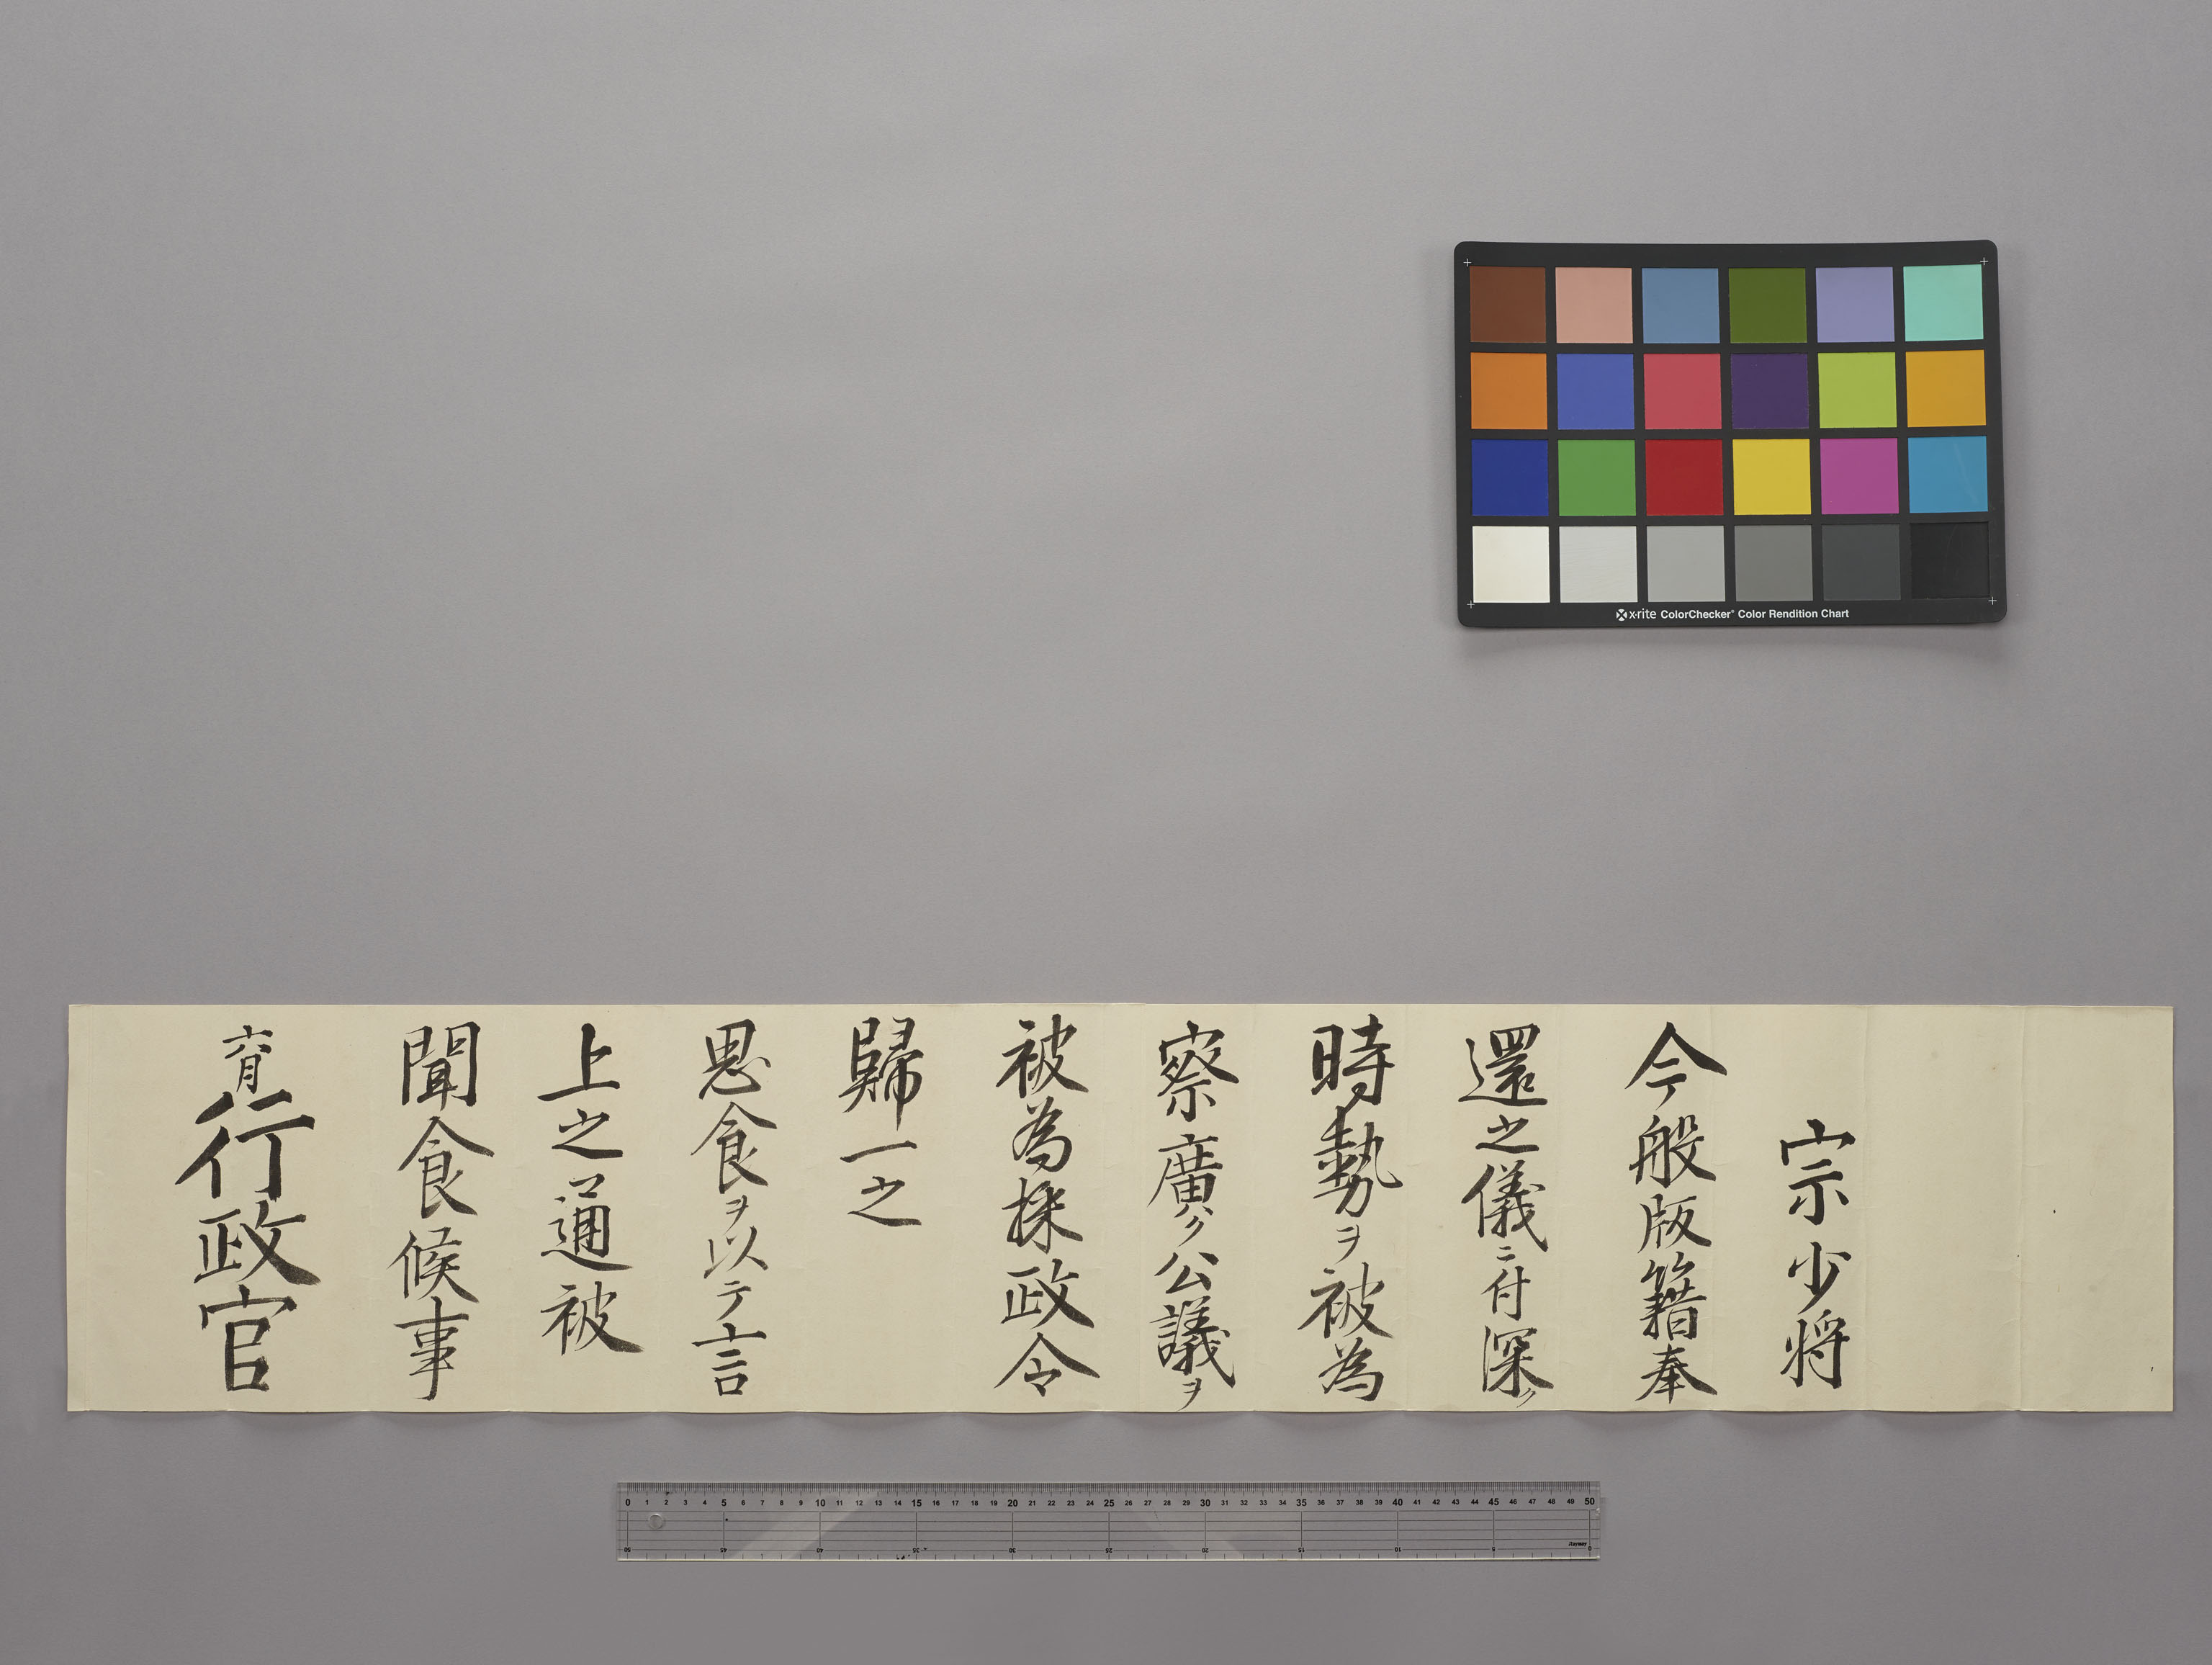 宗少将
今般版籍奉
還之儀ニ付深ク
時勢ヲ被為
察廣ク公議ヲ
被為採政令
歸一之
思食ヲ以テ言
上之通被
聞食候事
六月
行政官
x-rite ColorChecker Color Rendition Chart
0 1 2 3 4 5 6 7 8 9 10 11 12 13 14 15 16 17 18 19 20 21 22 23 24 25 26 27 28 29 30 31 32 33 34 35 36 37 38 39 40 41 42 43 44 45 46 47 48 49 50
50 45 40 35 30 25 20 15 10 5 0